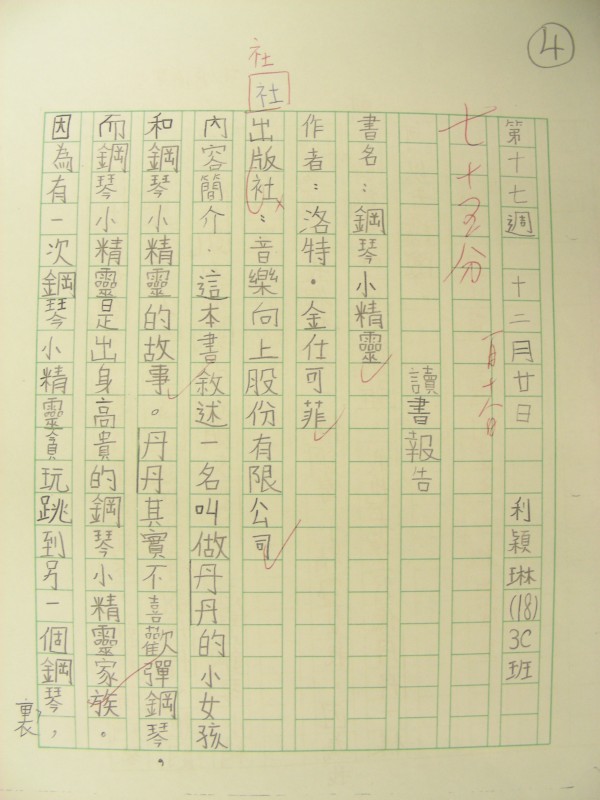 ④
第十七週 十二月廿日 利穎琳(18) 3C班
七十五分
讀書報告
書名：鋼琴小精靈
作者：洛特·金仕可菲
社
社
出版社：音樂向上股份有限公司
內容簡介：這本書敘述一名叫做丹丹的小女孩
和鋼琴小精靈的故事。丹丹其實不喜歡彈鋼琴，
而鋼琴小精靈是出身高貴的鋼琴小精靈家族。
因為有一次鋼琴小精靈貪玩跳到另一個鋼琴裏，